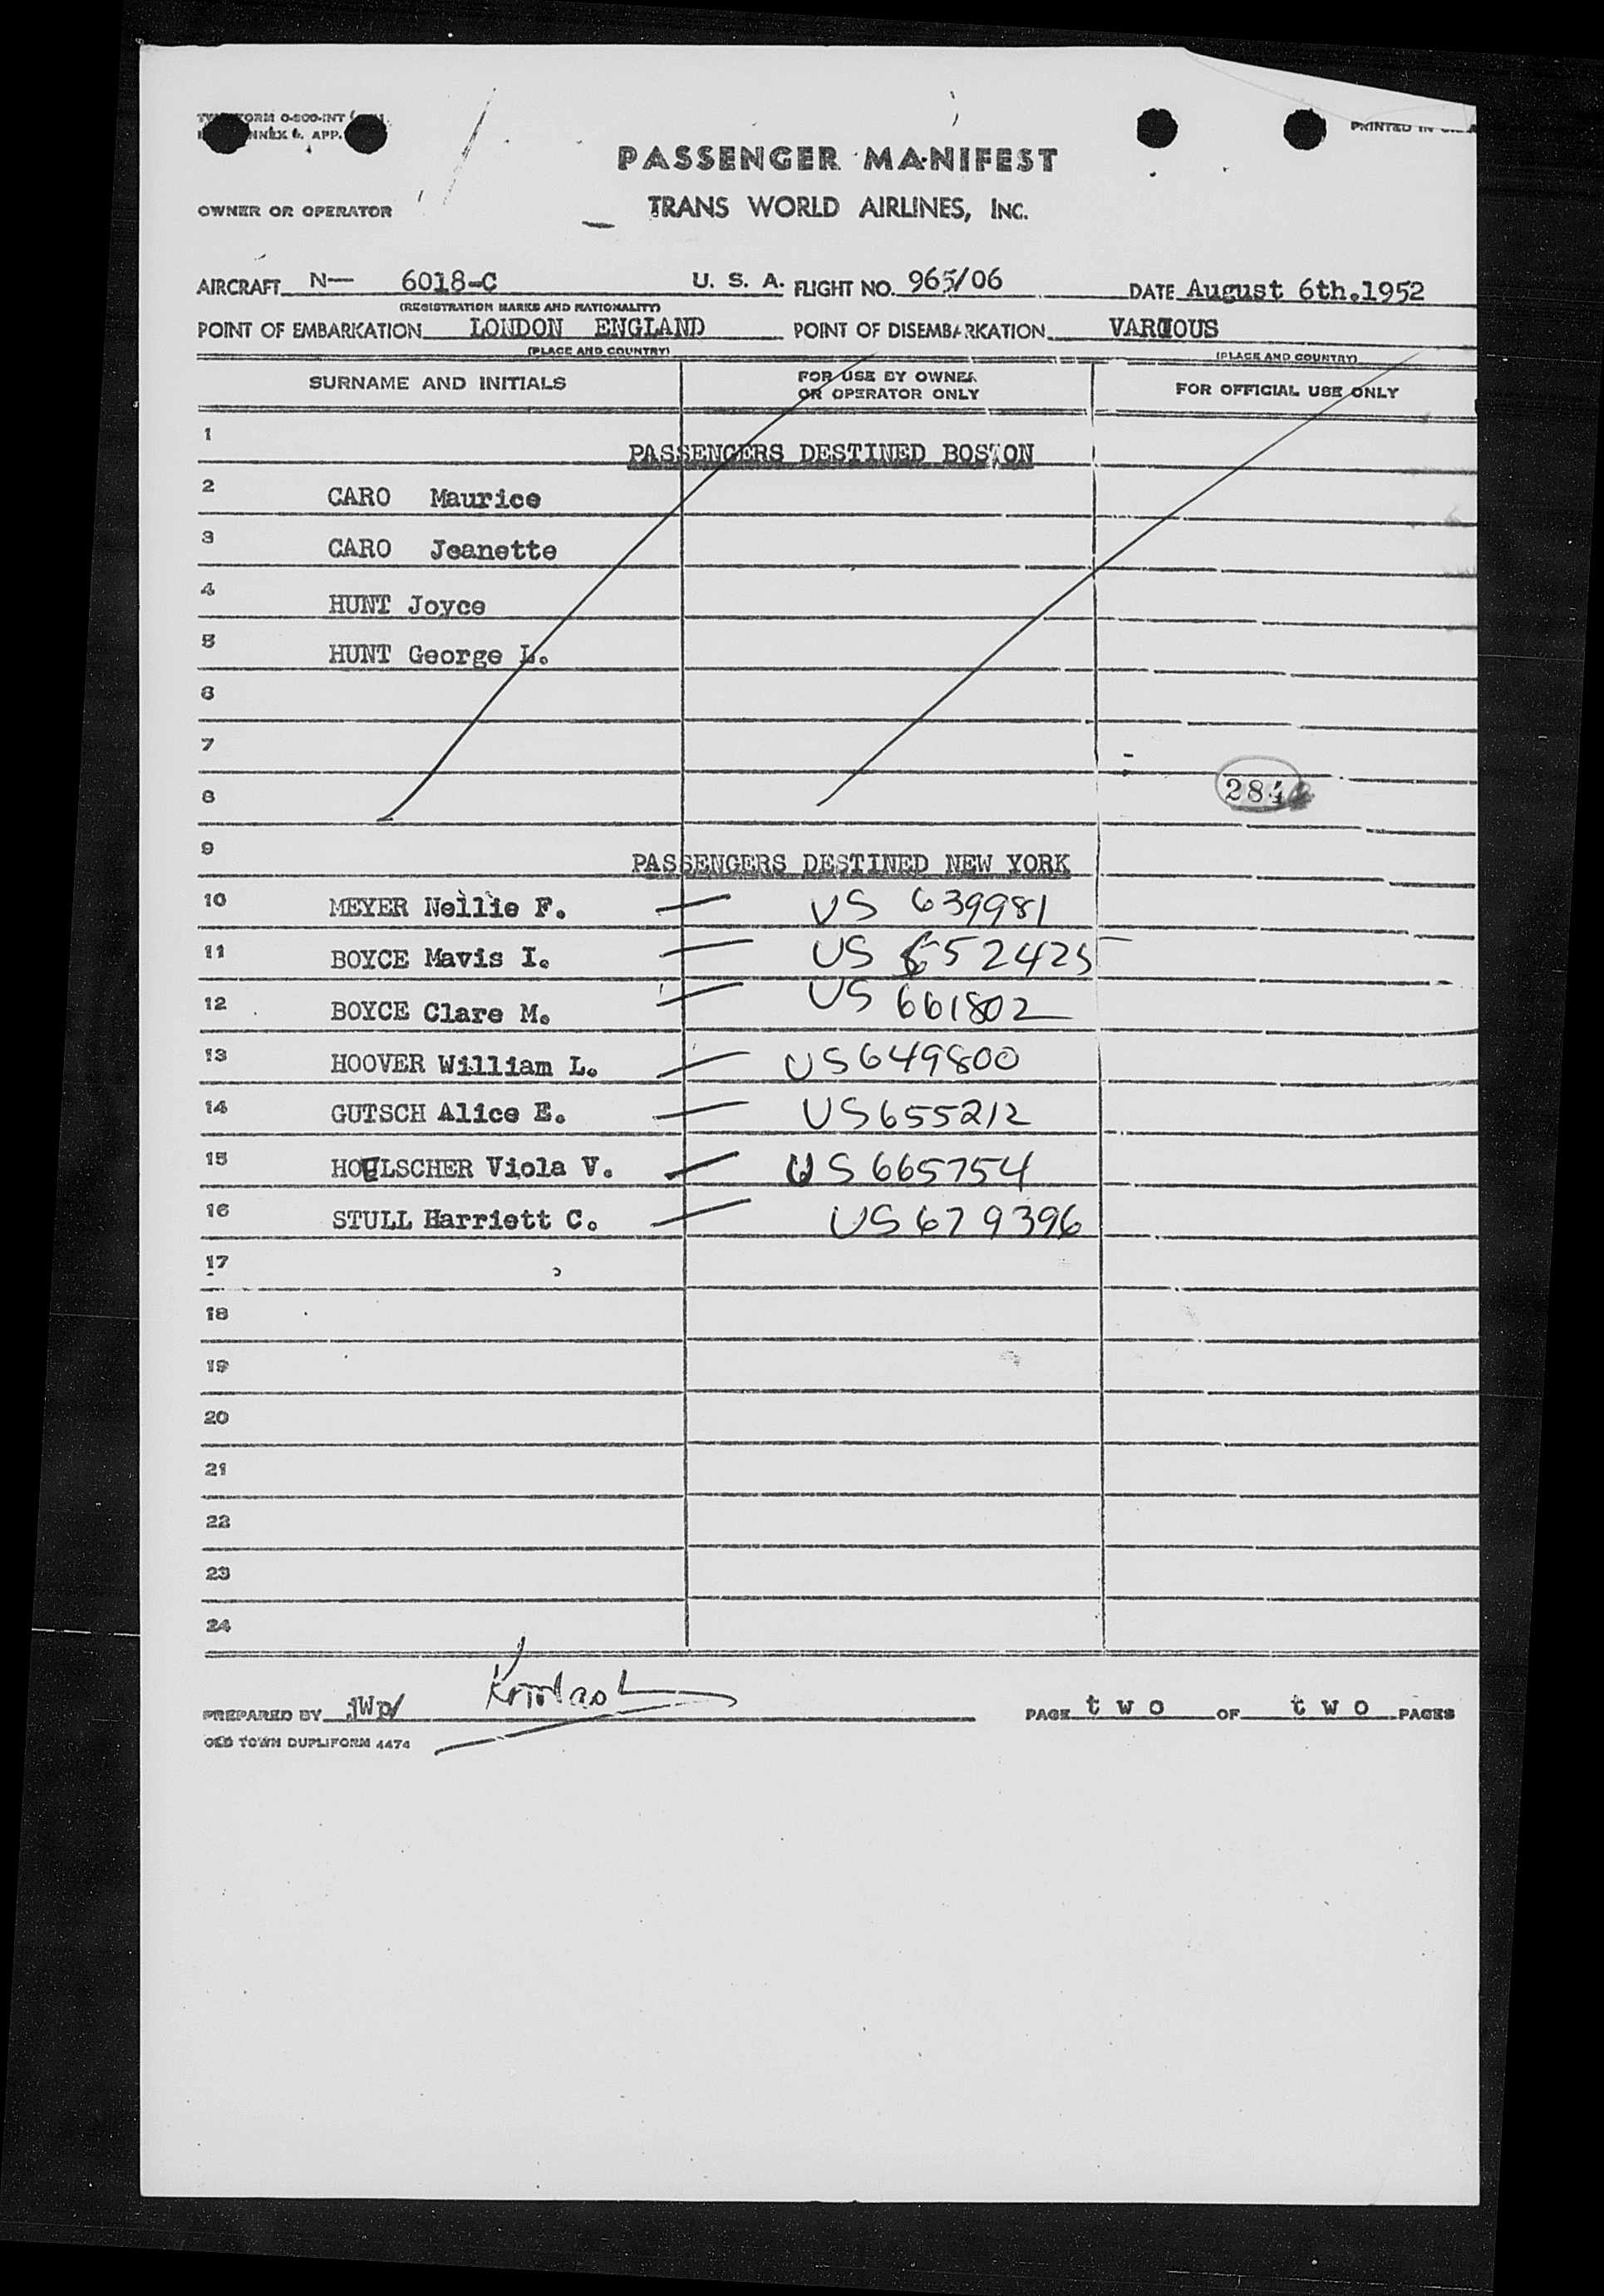 FORM O-800-INT
ANNEX 6. APP.
PRINTED IN
PASSENGER MANIFEST
OWNER OR OPERATOR
TRANS WORLD AIRLINES, INC.
AIRCRAFT N— 6018-C U. S. A. FLIGHT NO. 965/06 DATE August 6th.1952
(REGISTRATION MARKS AND NATIONALITY)
POINT OF EMBARKATION LONDON ENGLAND POINT OF DISEMBARKATION VARIOUS
(PLACE AND COUNTRY) (PLACE AND COUNTRY)
SURNAME AND INITIALS FOR USE BY OWNER OR OPERATOR ONLY FOR OFFICIAL USE ONLY
1 PASSENGERS DESTINED BOSTON
2 CARO Maurice
3 CARO Jeanette
4 HUNT Joyce
5 HUNT George L.
6
7
8 284
9 PASSENGERS DESTINED NEW YORK
10 MEYER Nellie F. — US 639981
11 BOYCE Mavis I. — US 652425
12 BOYCE Clare M. — US 661802
13 HOOVER William L. — US649800
14 GUTSCH Alice E. — US655212
15 HOELSCHER Viola V. — US665754
16 STULL Harriett C. — US679396
17
18
19
20
21
22
23
24
PREPARED BY PAGE two OF two PAGES
OLD TOWN DUPLIFORM 4474